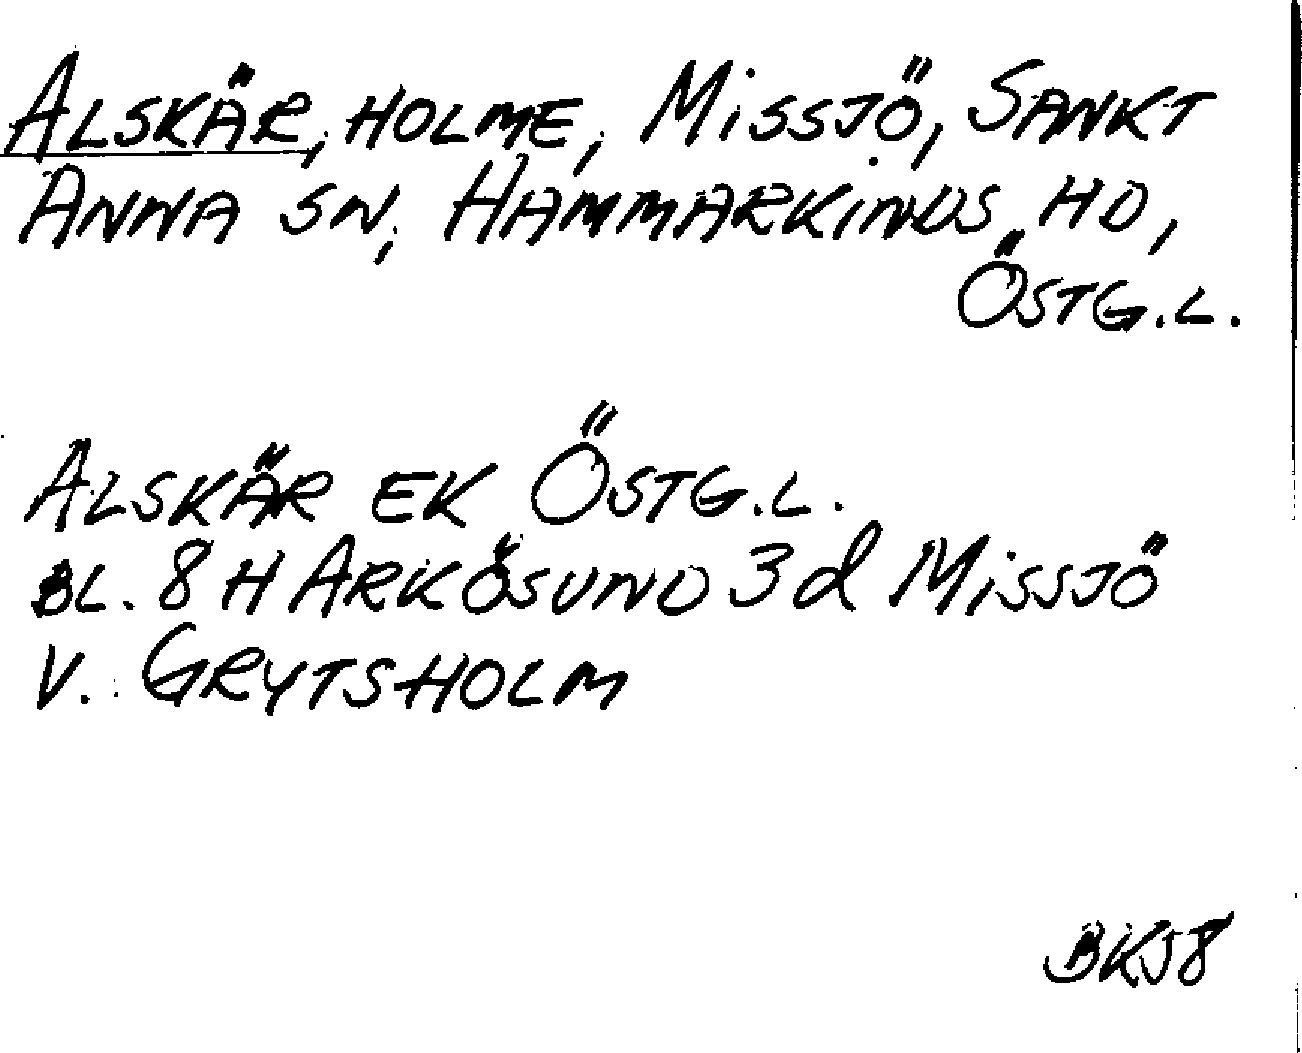 ALSKÄR, HOLME, MISSJÖ, SANKT
ANNA SN, HAMMARKINDS HD,
ÖSTG.L.
ALSKÄR EK ÖSTG.L.
BL. 8 H ARKÖSUND 3d MISSJÖ
V. GRYTSHOLM